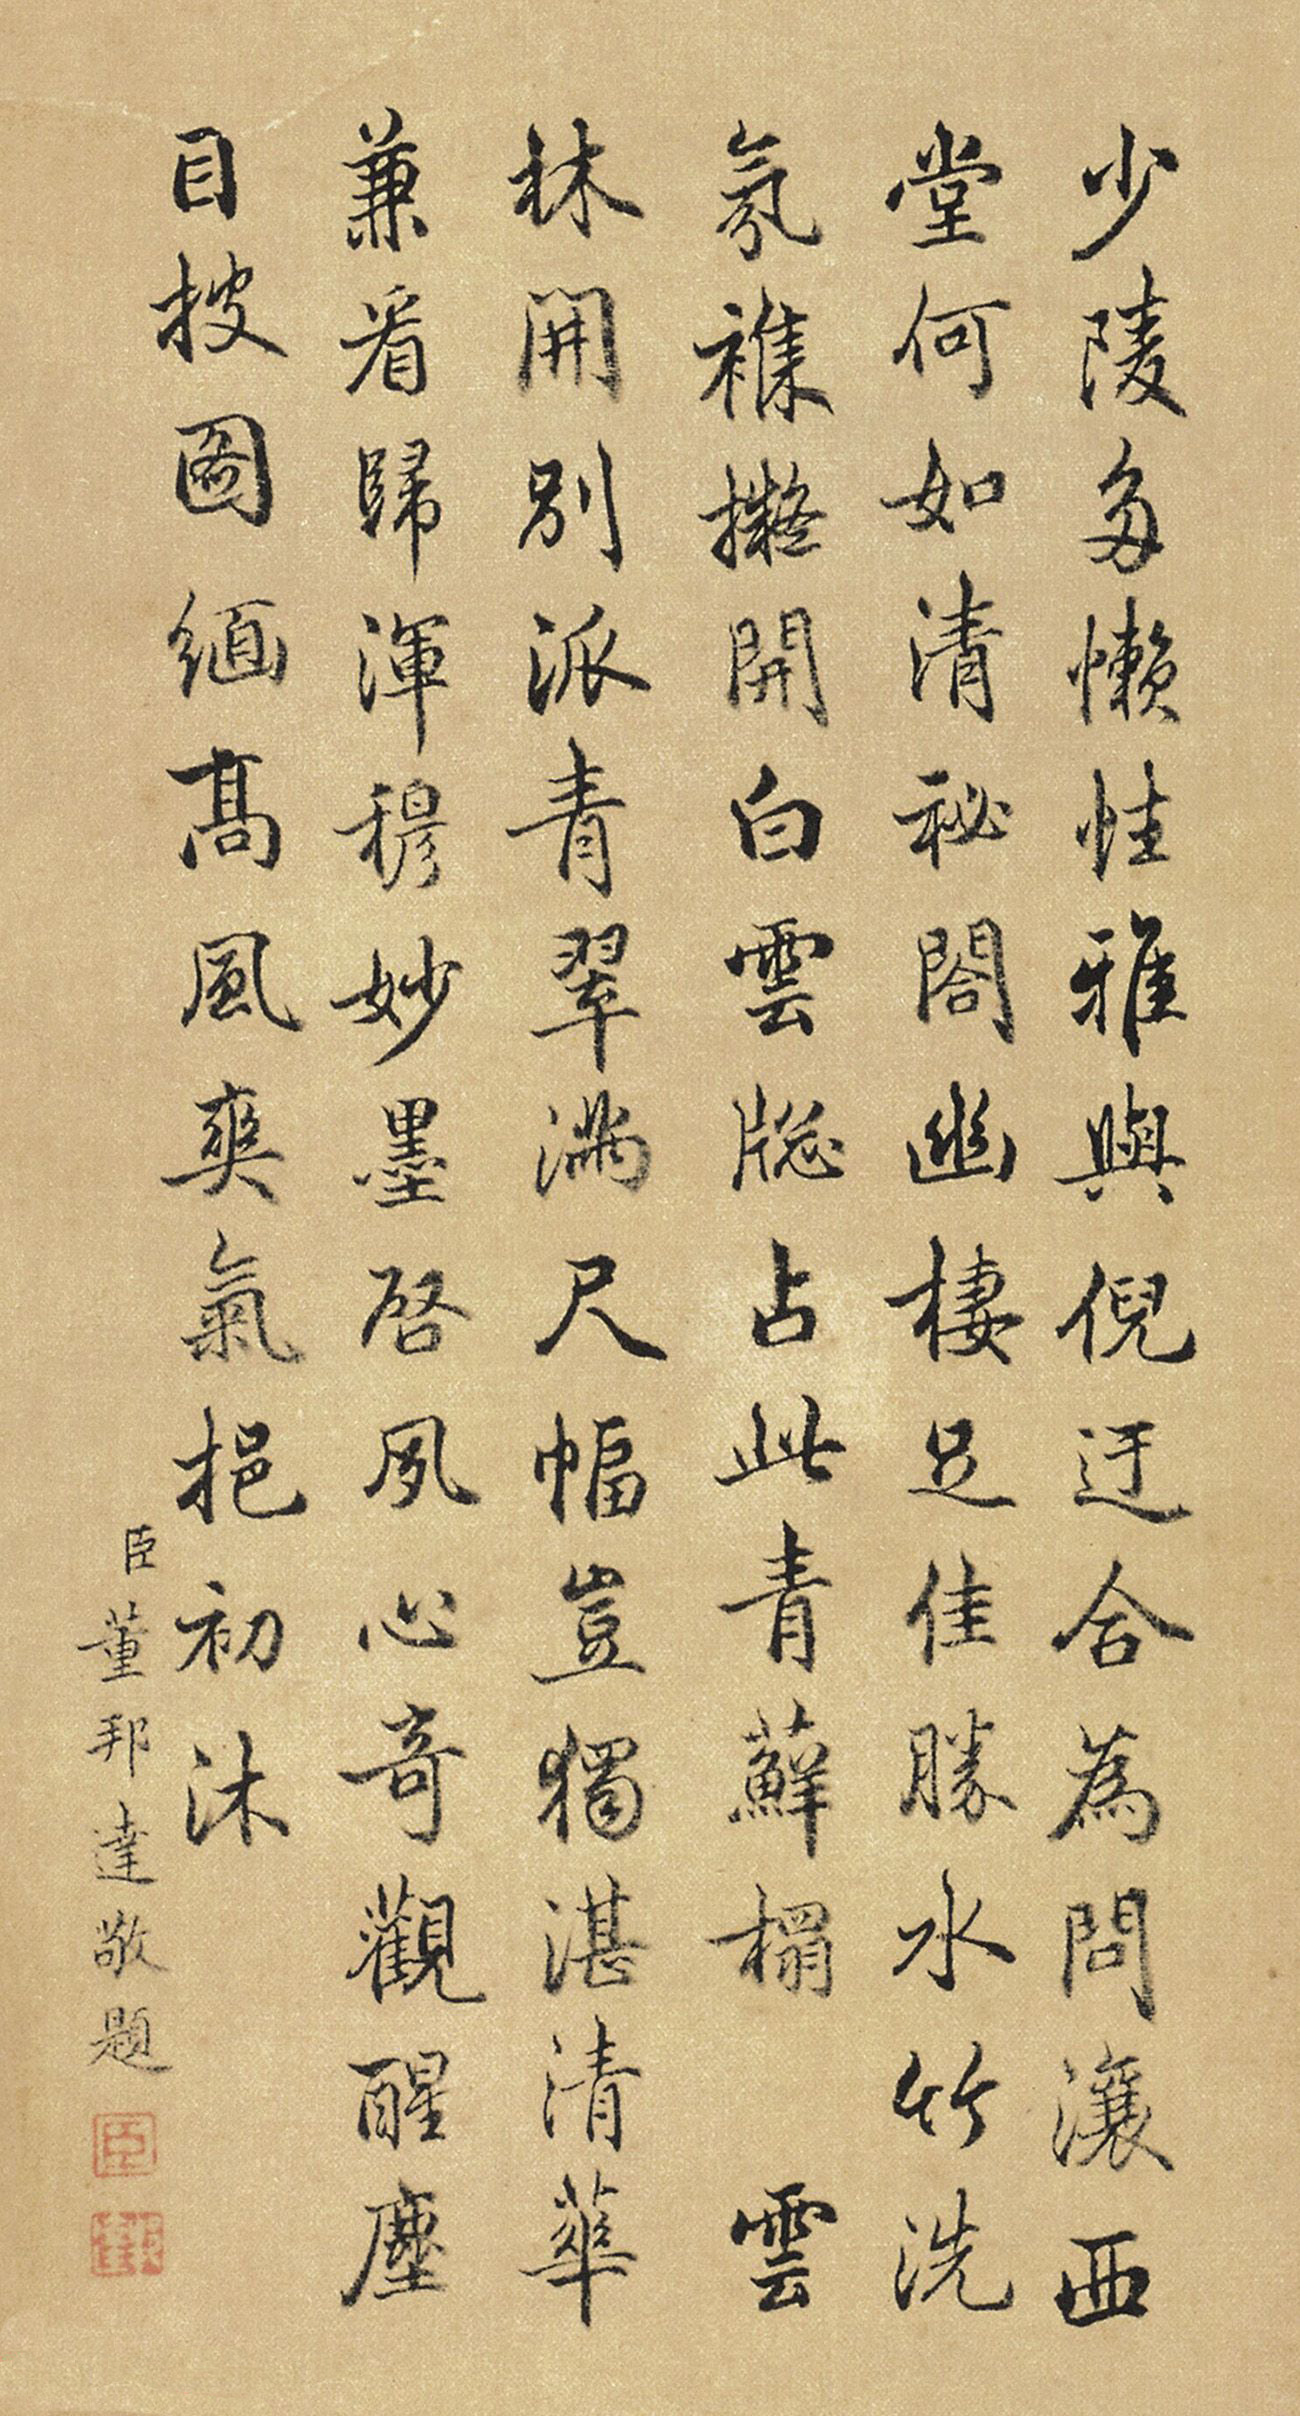 少陵多懶性雅與倪迂合為問瀼西
堂何如清祕閣幽棲足佳勝水竹洗
氛襍擬開白雲牕占此青蘚榻 雲
林開別派青翠滿尺幅豈獨湛清華
兼看歸渾穆妙墨啓夙心奇觀醒塵
目披圖緬高風爽氣挹初沐
臣董邦達敬題
臣